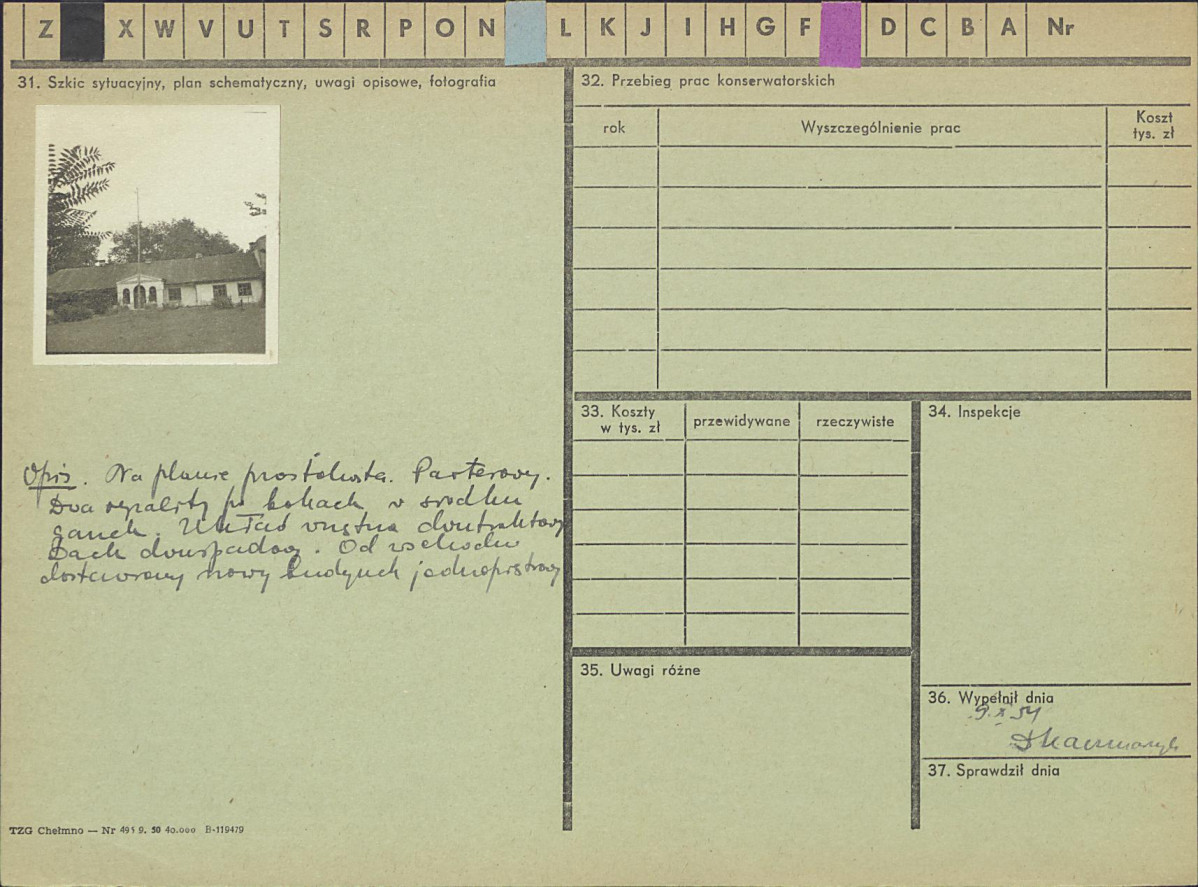 Z X W V U T S R P O N L K J I H G F D C B A Nr
31. Szkic sytuacyjny, plan schematyczny, uwagi opisowe, fotografia
Opis. Na planie prostokąta. Parterowy.
Dwa ryzality po bokach w środku
ganek. Układ wnętrza dwutraktowy
Dach dwuspadowy. Od wschodu
dostawiony nowy budynek jednopiętrowy
TZG Chełmno — Nr 495 9. 50 40.000 B-119479
32. Przebieg prac konserwatorskich
rok
Wyszczególnienie prac
Koszt
tys. zł
33. Koszty
w tys. zł
przewidywane
rzeczywiste
34. Inspekcje
35. Uwagi różne
36. Wypełnił dnia
9. X 54
37. Sprawdził dnia